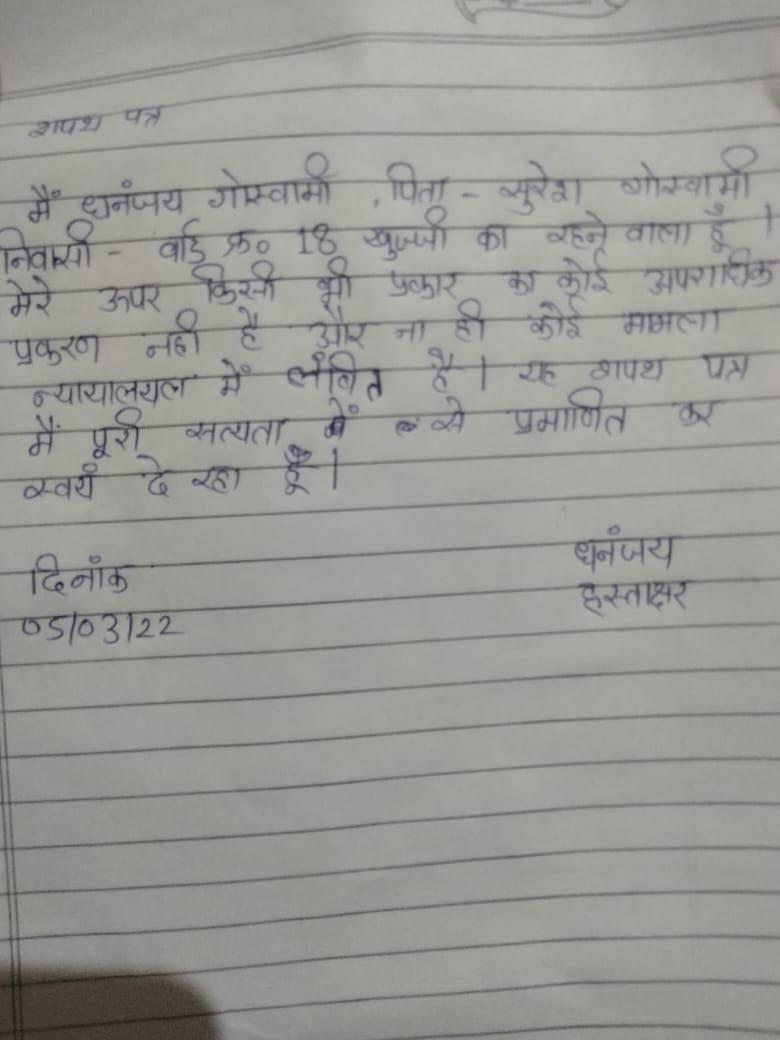 शपथ पत्र
मैं धनंजय गोस्वामी , पिता - सुरेश गोस्वामी
निवासी - वार्ड क्र० 18 खुज्जी का रहने वाला हूँ ।
मेरे ऊपर किसी भी प्रकार का कोई अपराधिक
प्रकरण नही है और ना ही कोई मामला
न्यायालयल में लंबित है । यह शपथ पत्र
मैं पूरी सत्यता से प्रमाणित कर
स्वयं दे रहा हूँ ।
धनंजय
दिनांक हस्ताक्षर
05/03/22